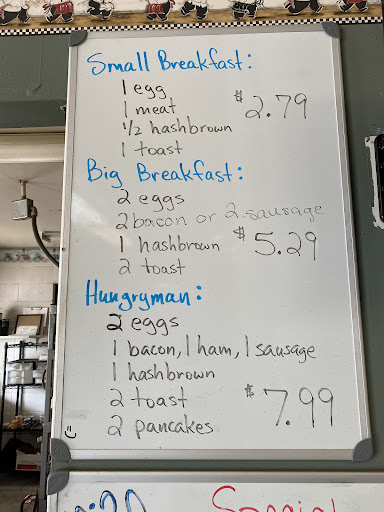 Small Breakfast:
1 egg
1 meat
$2.79
1/2 hashbrown
1 toast
Big Breakfast:
2 eggs
2 bacon or 2 sausage
1 hashbrown $5.29
2 toast
Hungryman:
2 eggs
1 bacon, 1 ham, 1 sausage
1 hashbrown
2 toast $7.99
2 pancakes